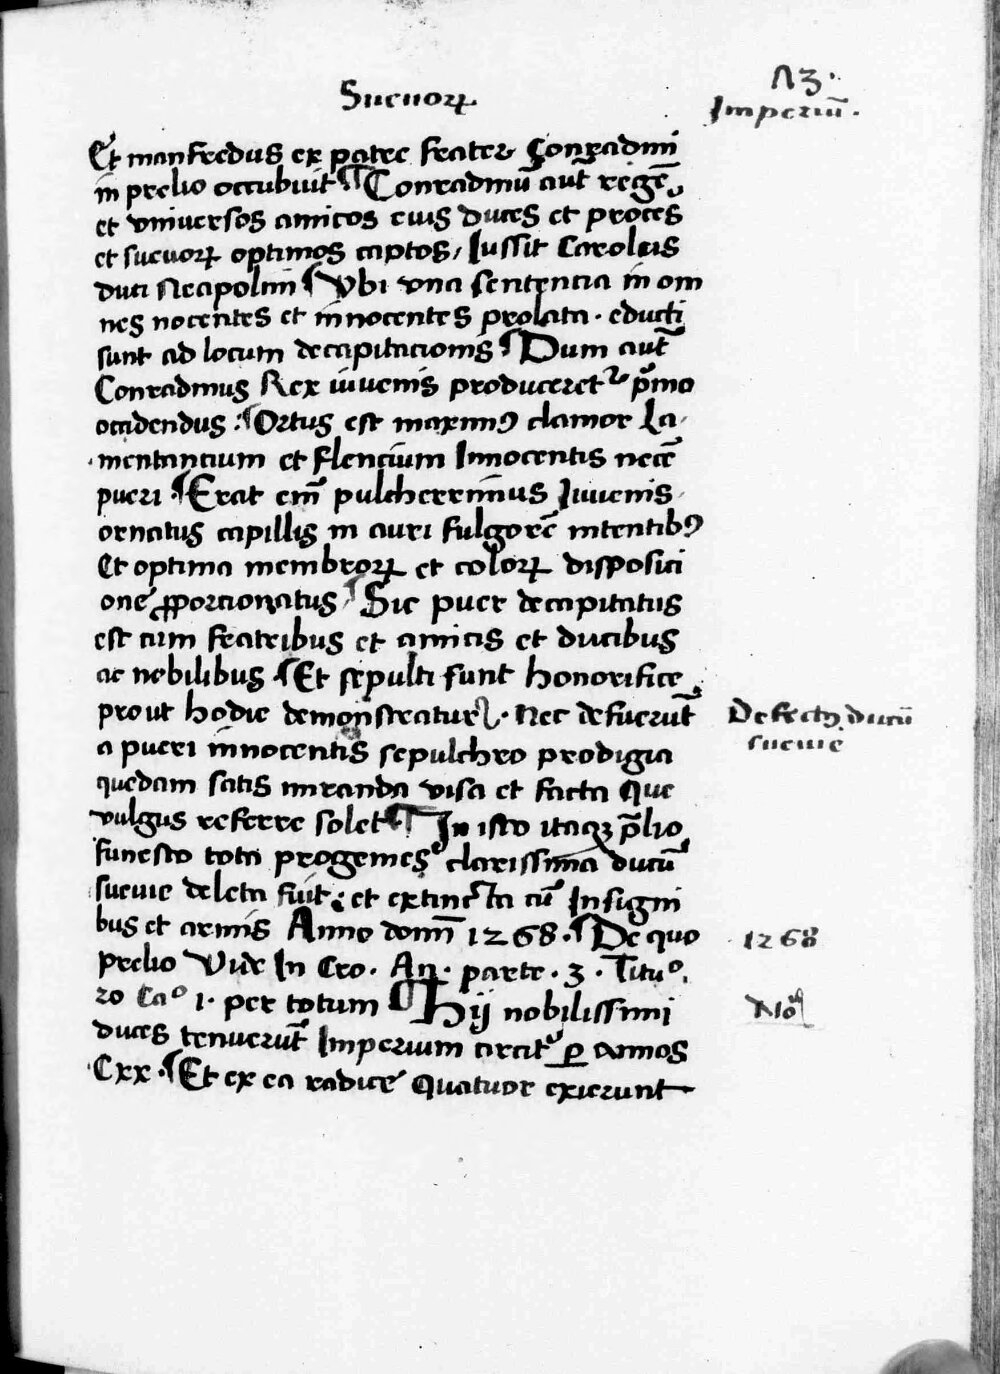 73.
Sueuoꝝ Imperiū.
Et manfredus ex patre frater Conradini
in prelio occubuit ¶ Conradinū aut̄ regē
et vniuersos amicos eius duces et proces
et sueuoꝝ optimos captos / Iussit Carolus
duci Neapolim ¶ Vbi vna sentencia in om
nes nocentes et innocentes prolata · educti
sunt ad locum decapitacionis ¶ Dum aut̄
Conradinus Rex iuuenis produceret᷑ p̄mo
occidendus : ¶ Ortus est maximꝰ clamor La
mentancium et flencium Innocentis necē
pueri · ¶ Erat em̄ pulcherrimus Iuuenis
ornatus capillis in auri fulgorē nitentibꝰ
Et optima membroꝝ et coloꝝ disposici
one ꝓporcionatus / ¶ Sic puer decapitatus
est cum fratribus et amicis et ducibus
ac nobilibus · ¶ Et sepulti sunt honorifice
prout hodie demonstratur · Nec defuerūt Defectꝰ ducū
a pueri innocentis sepulchro prodigia sueuie
quedam satis miranda visa et facta Que
vulgus referre solet ¶ In isto itaqꝫ p̄lio
funesto tota progenies clarissima ducū
sueuie deleta fuit ; et extincta cū Insigni
bus et armis Anno domī 1268 · ¶ De quo 1268
prelio Vide In Cro · An · parte · 3 · Tituᵒ ·
20 Caᵒ 1 · per totum ¶ Hij nobilissimi Noᵃ
duces tenuerūt Imperium circit᷑ ꝑ annos
Cxx · ¶ Et ex ea radice Quatuor exierunt